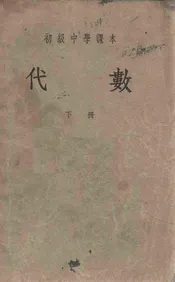 初級中學課本
代數
下冊